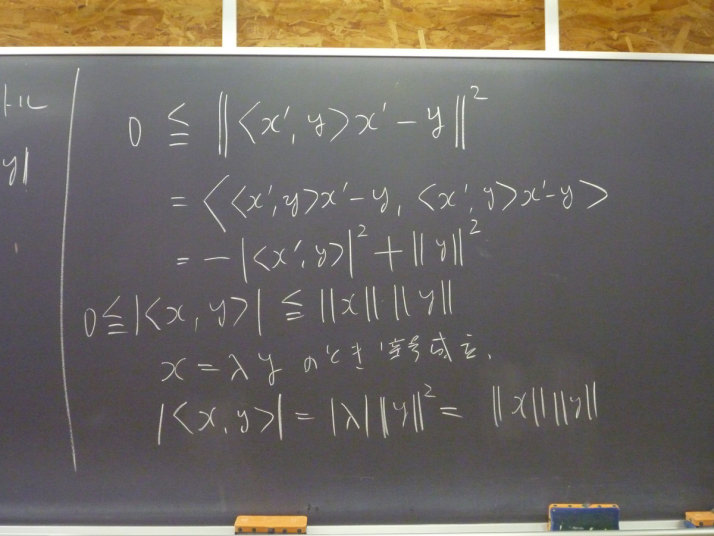 トル
y|
0 ≦ ‖<x', y>x' − y‖²
= <<x', y>x' − y, <x', y>x' − y>
= −|<x', y>|² + ‖y‖²
0 ≦ |<x, y>| ≦ ‖x‖ ‖y‖
x = λy のとき 等号成立.
|<x, y>| = |λ| ‖y‖² = ‖x‖ ‖y‖